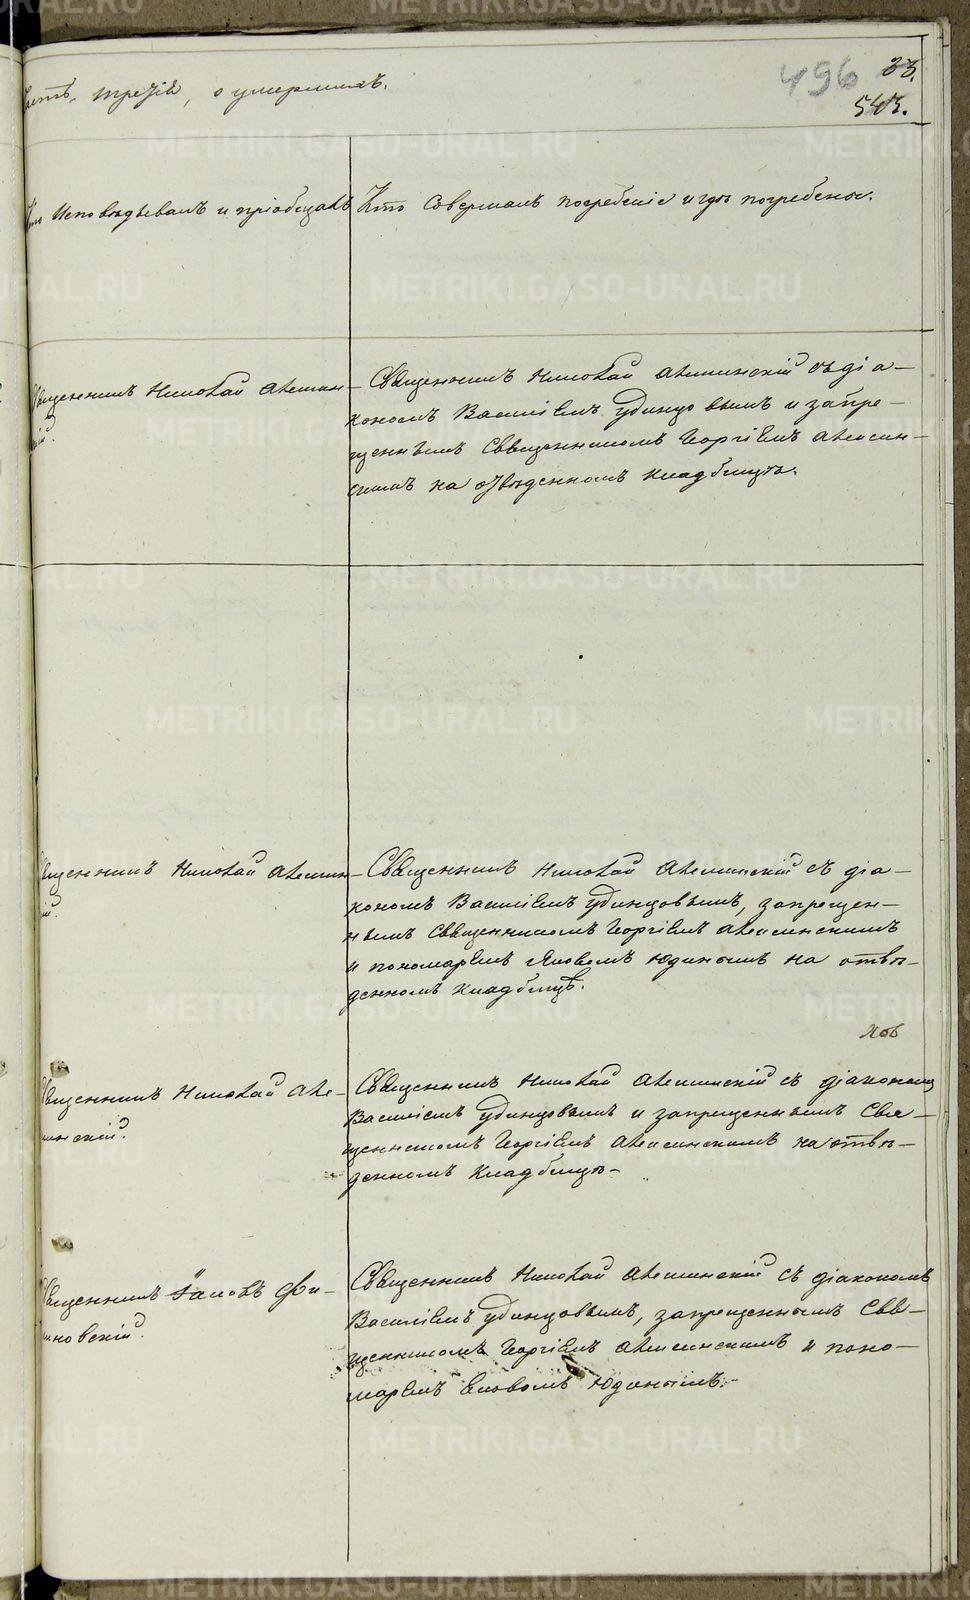 496 33.
543.
Часть третія, о умершихъ.
Кто Исповѣдывалъ и пріобщалъ
Кто Совершалъ погребеніе и гдѣ погребены.
Священникъ Николай
Священникъ Николай съ діа-
кономъ Василіемъ Удинцовымъ и запре-
щеннымъ Священникомъ Георгіемъ
на отведенномъ кладбищѣ.
Священникъ Николай
Священникъ Николай съ діа-
кономъ Василіемъ Удинцовымъ, запрещен-
нымъ Священникомъ Георгіемъ
и пономаремъ Яковомъ Юдинымъ на отве-
денномъ кладбищѣ.
Священникъ Николай
Священникъ Николай съ діакономъ
Василіемъ Удинцовымъ и запрещеннымъ Свя-
щенникомъ Георгіемъ на отве-
денномъ Кладбищѣ.
Священникъ Іаковъ Фи-
новскій.
Священникъ Николай съ діакономъ
Василіемъ Удинцовымъ, запрещеннымъ Свя-
щенникомъ Георгіемъ и поно-
маремъ Юдинымъ.
METRIKI.GASO-URAL.RU